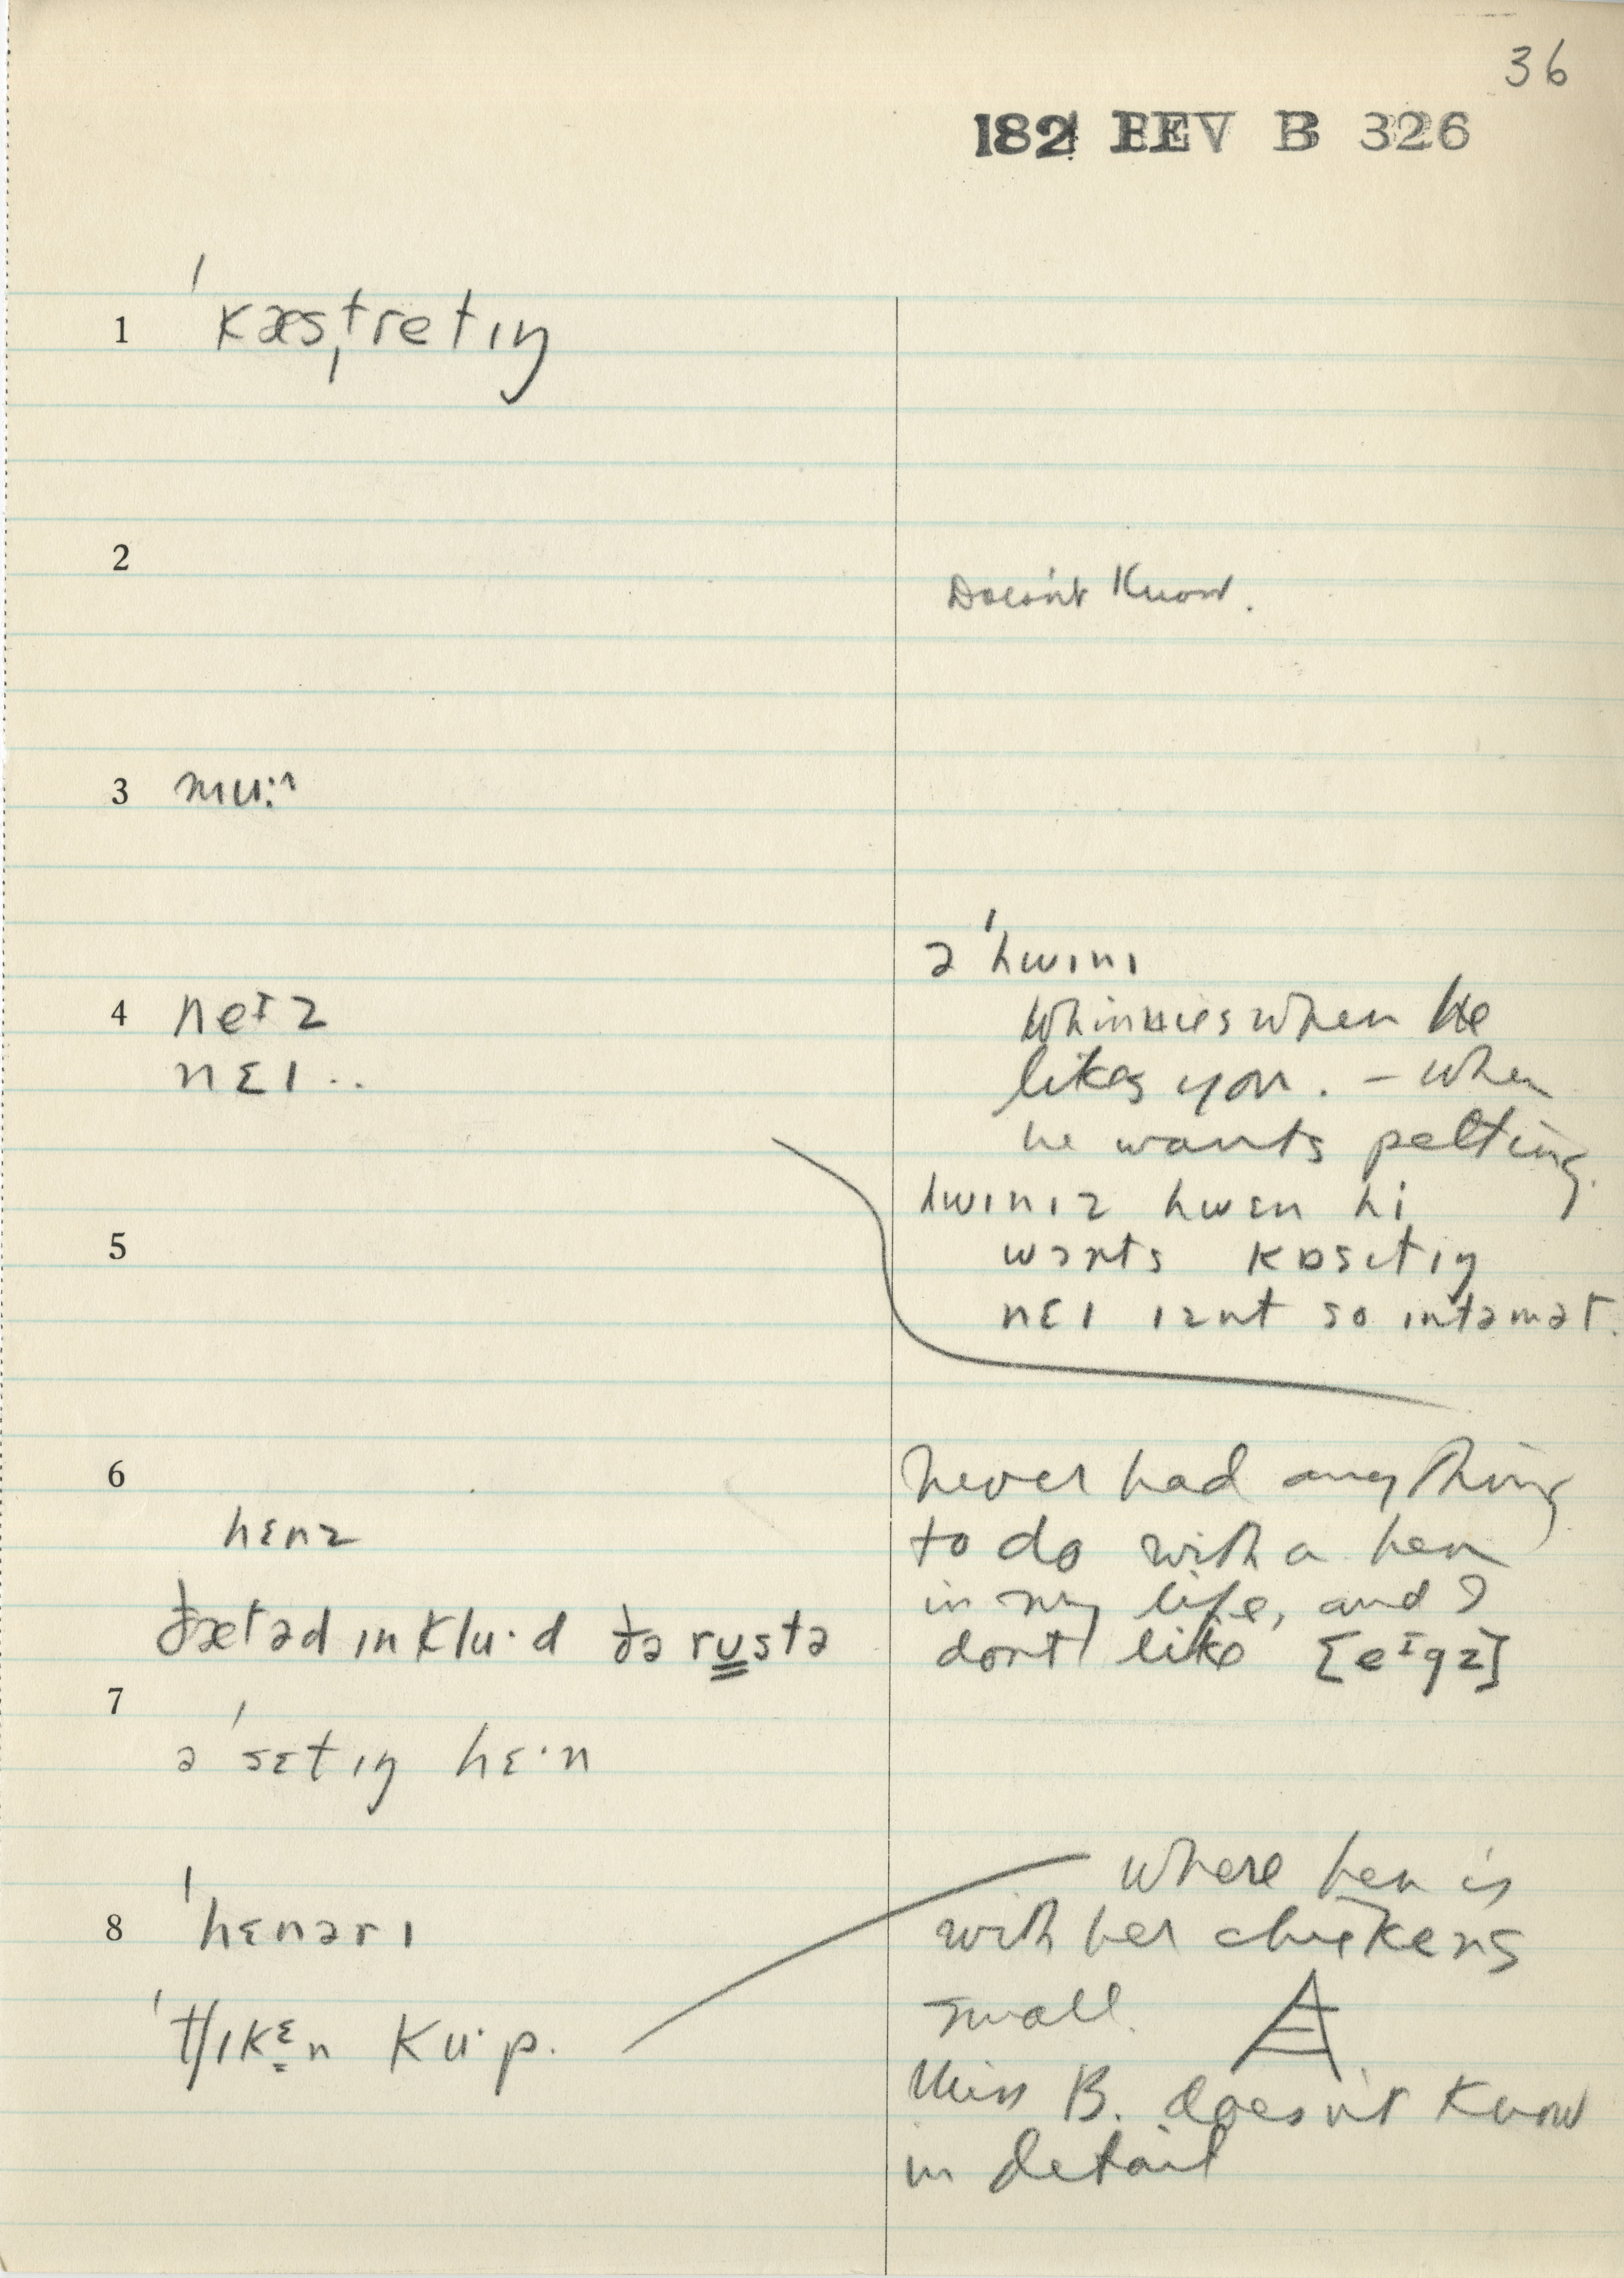 36
182 BEV B 326
1 ˈkæsˌtretɪŋ
2 Doesn't know.
3 mu:^
ə ˈhwɪnɪ
4 neɪz whinnies when he
nɛɪ .. likes you. – when
he wants petting.
hwɪnɪz hwɛn hi
5 wɔnts kɒsɛtɪŋ
nɛɪ ɪznt so ɪntəmət.
6 never had anything
hɛnz to do with a hen
in my life, and I
ðæt əd ɪnklu·d ðə rustə don't like [eɪgz]
7
ə ˈsɛtɪŋ hɛ·n
where hen is
8 ˈhɛnərɪ with her chickens
small.
ˈtʃɪkɛn ku·p.
Miss B. doesn't know
in detail